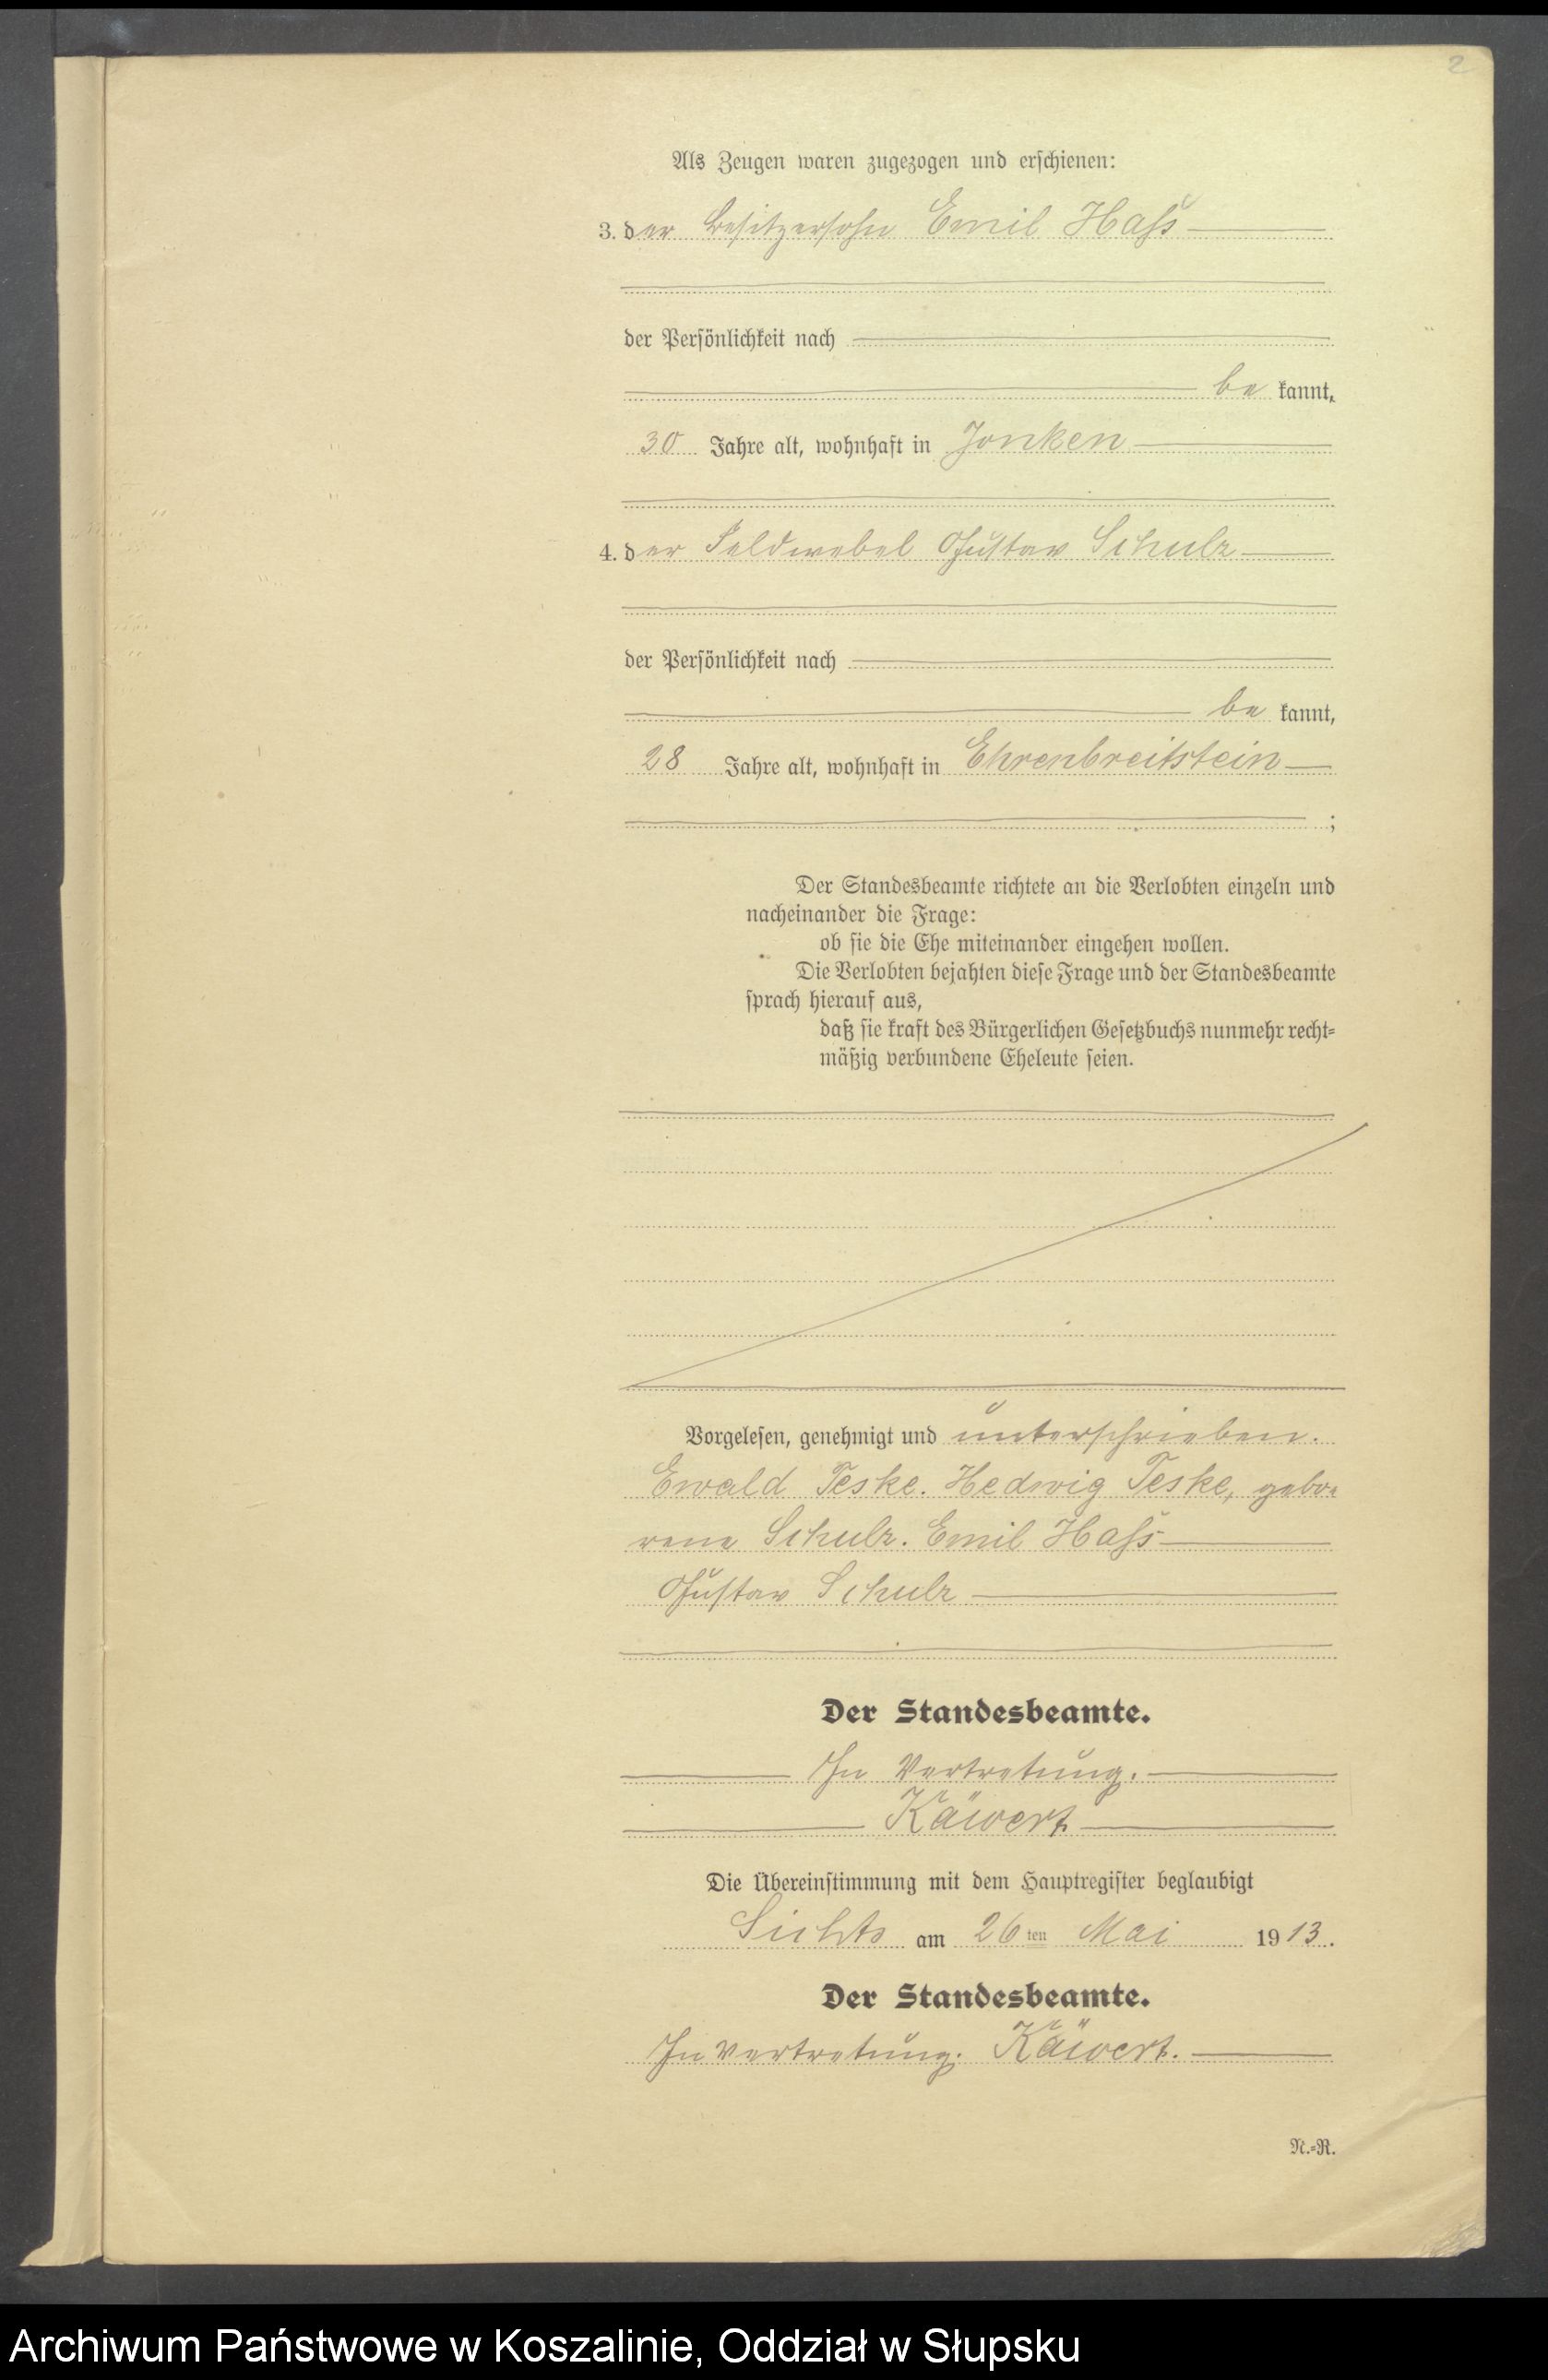 2
Als Zeugen waren zugezogen und erschienen:
3. der Besitzersohn Emil Haß
der Persönlichkeit nach
be kannt,
30 Jahre alt, wohnhaft in Jonken
4. der Feldwebel Gustav Schulz
der Persönlichkeit nach
be kannt,
28 Jahre alt, wohnhaft in Ehrenbreitstein
;
Der Standesbeamte richtete an die Verlobten einzeln und
nacheinander die Frage:
ob sie die Ehe miteinander eingehen wollen.
Die Verlobten bejahten diese Frage und der Standesbeamte
sprach hierauf aus,
daß sie kraft des Bürgerlichen Gesetzbuchs nunmehr recht-
mäßig verbundene Eheleute seien.
Vorgelesen, genehmigt und unterschrieben.
Ewald Teske. Hedwig Teske, gebo-
rene Schulz. Emil Haß
Gustav Schulz
Der Standesbeamte.
In Vertretung.
Käwert
Die Übereinstimmung mit dem Hauptregister beglaubigt
am 26ten Mai 1913.
Der Standesbeamte.
In Vertretung. Käwert.
N.-R.
Archiwum Państwowe w Koszalinie, Oddział w Słupsku